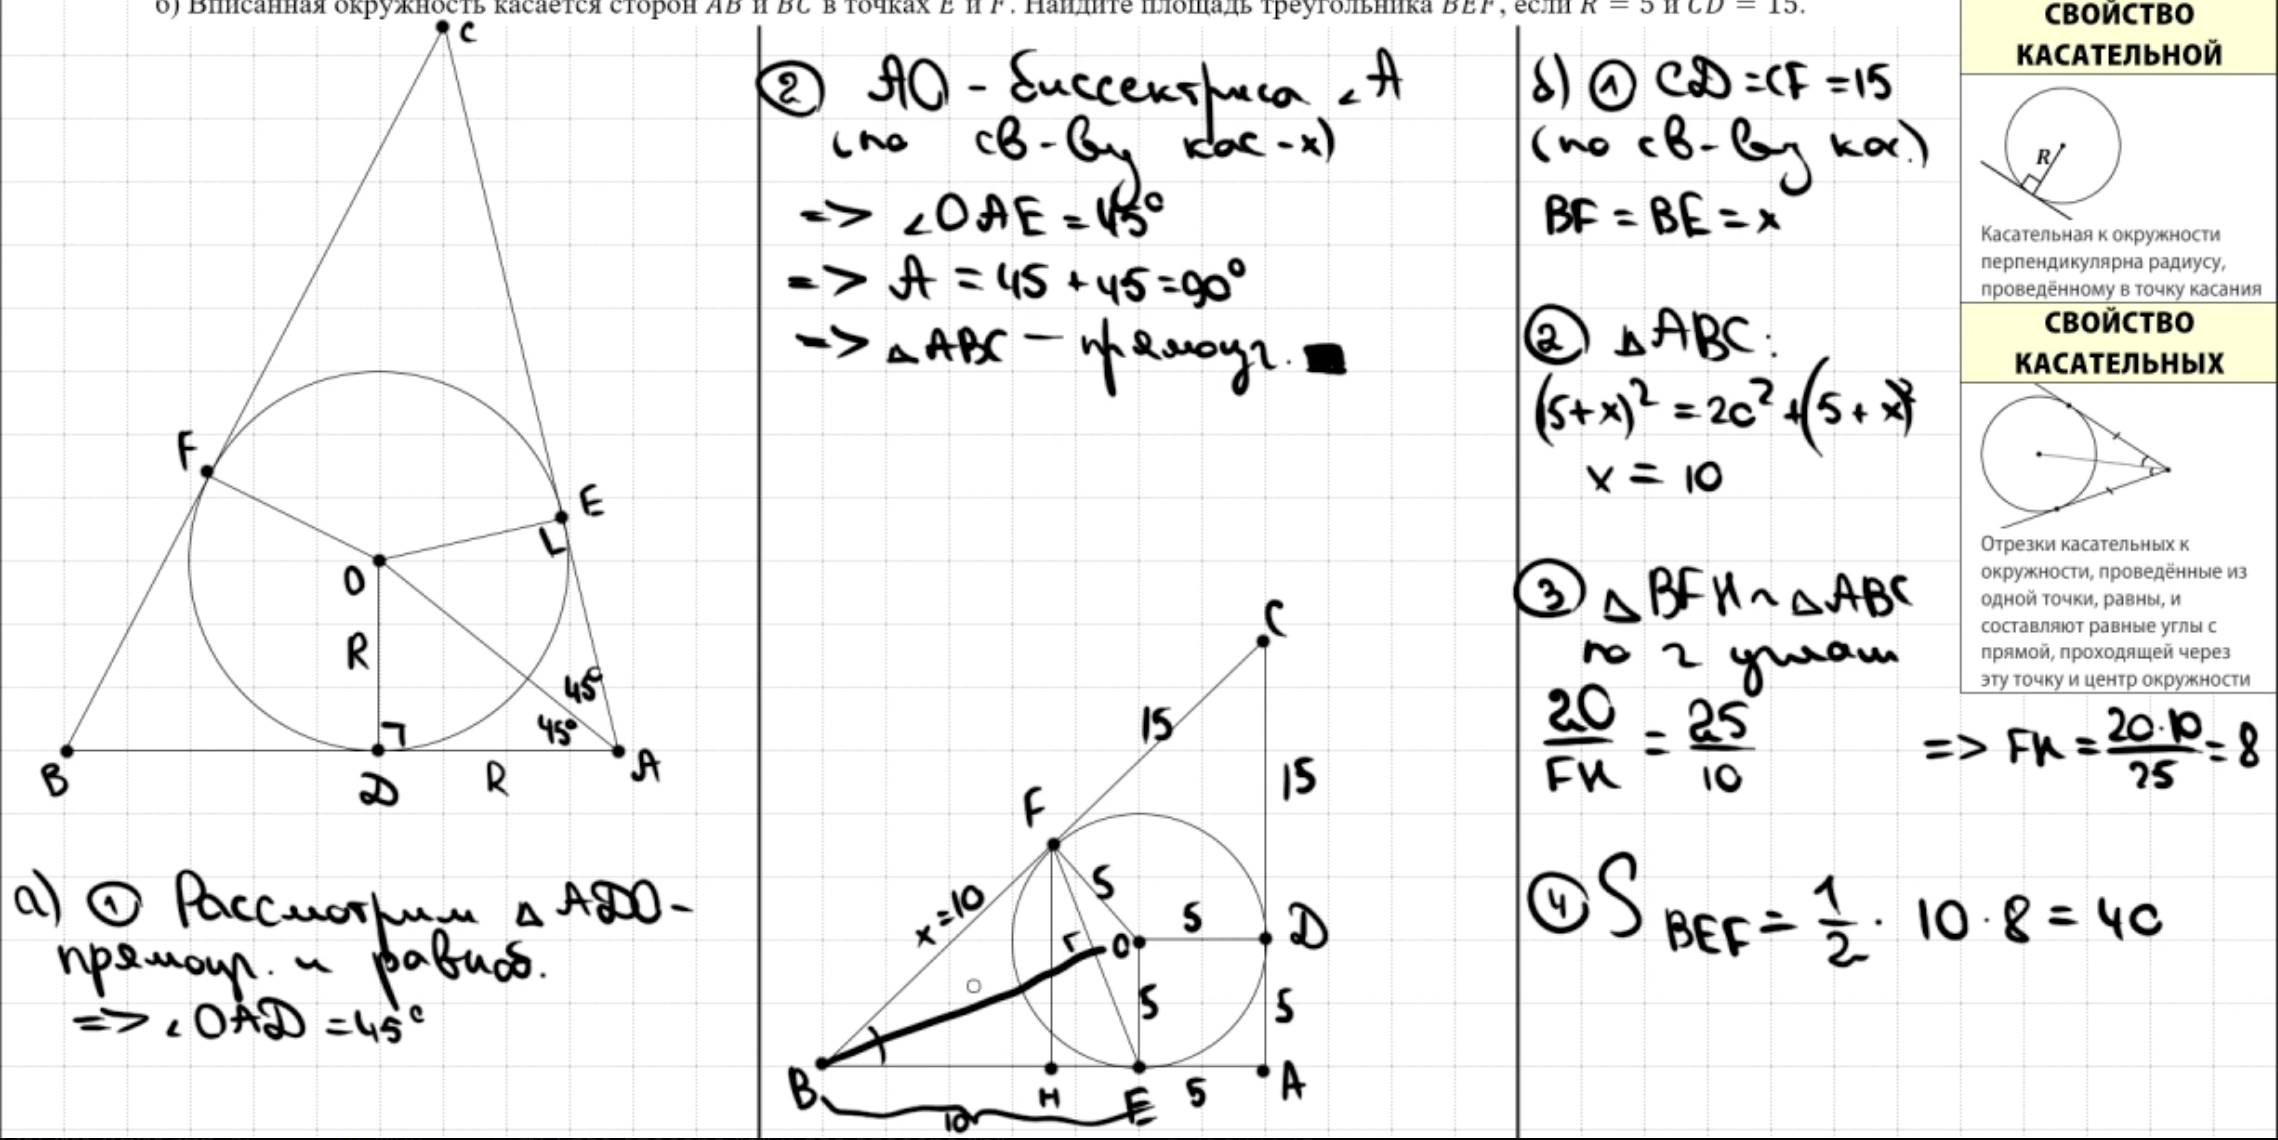 б) Вписанная окружность касается сторон AB и BC в точках E и F. Найдите площадь треугольника BEF, если R = 5 и CD = 15.
C
F
E
O
R
45°
45°
B
D
R
A
а) ① Рассмотрим △ ADO -
прямоуг. и равноб.
=> ∠OAD = 45°
② AO - биссектриса ∠A
(по св-ву кас-х)
=> ∠OAE = 45°
=> A = 45 + 45 = 90°
=> △ABC - прямоуг. ■
C
15
15
F
x=10
5
O
5
D
5
5
B
H
E
5
A
10
б) ① CD = CF = 15
(по св-ву кас.)
BF = BE = x
② △ABC:
(5+x)² = 20² + (5+x)²
x = 10
③ △BFH ~ △ABC
по 2 углам
20/FH = 25/10 => FH = 20·10/25 = 8
④ S BEF = 1/2 · 10 · 8 = 40
СВОЙСТВО
КАСАТЕЛЬНОЙ
R
Касательная к окружности
перпендикулярна радиусу,
проведённому в точку касания
СВОЙСТВО
КАСАТЕЛЬНЫХ
Отрезки касательных к
окружности, проведённые из
одной точки, равны, и
составляют равные углы с
прямой, проходящей через
эту точку и центр окружности